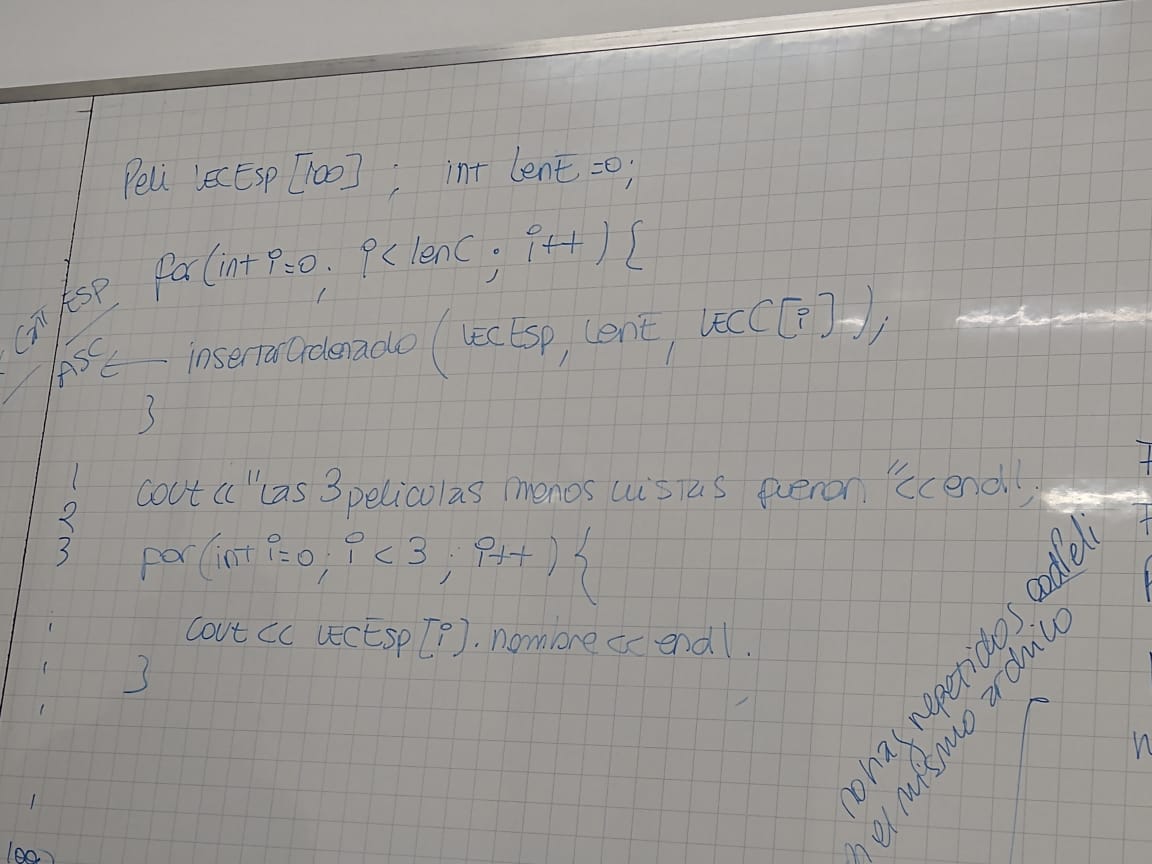 Peli vecEsp[100]; int lenE=0;
for(int i=0; i<lenC; i++){
CAT ESP
ASC ← insertarOrdenado(vecEsp, lenE, vecC[i]);
}
1
2
3
cout<<"Las 3 peliculas menos vistas fueron"<<endl;
for(int i=0; i<3; i++){
cout<<vecEsp[i].nombre<<endl.
}
100
no hay repetidos codPeli
n el mismo archivo